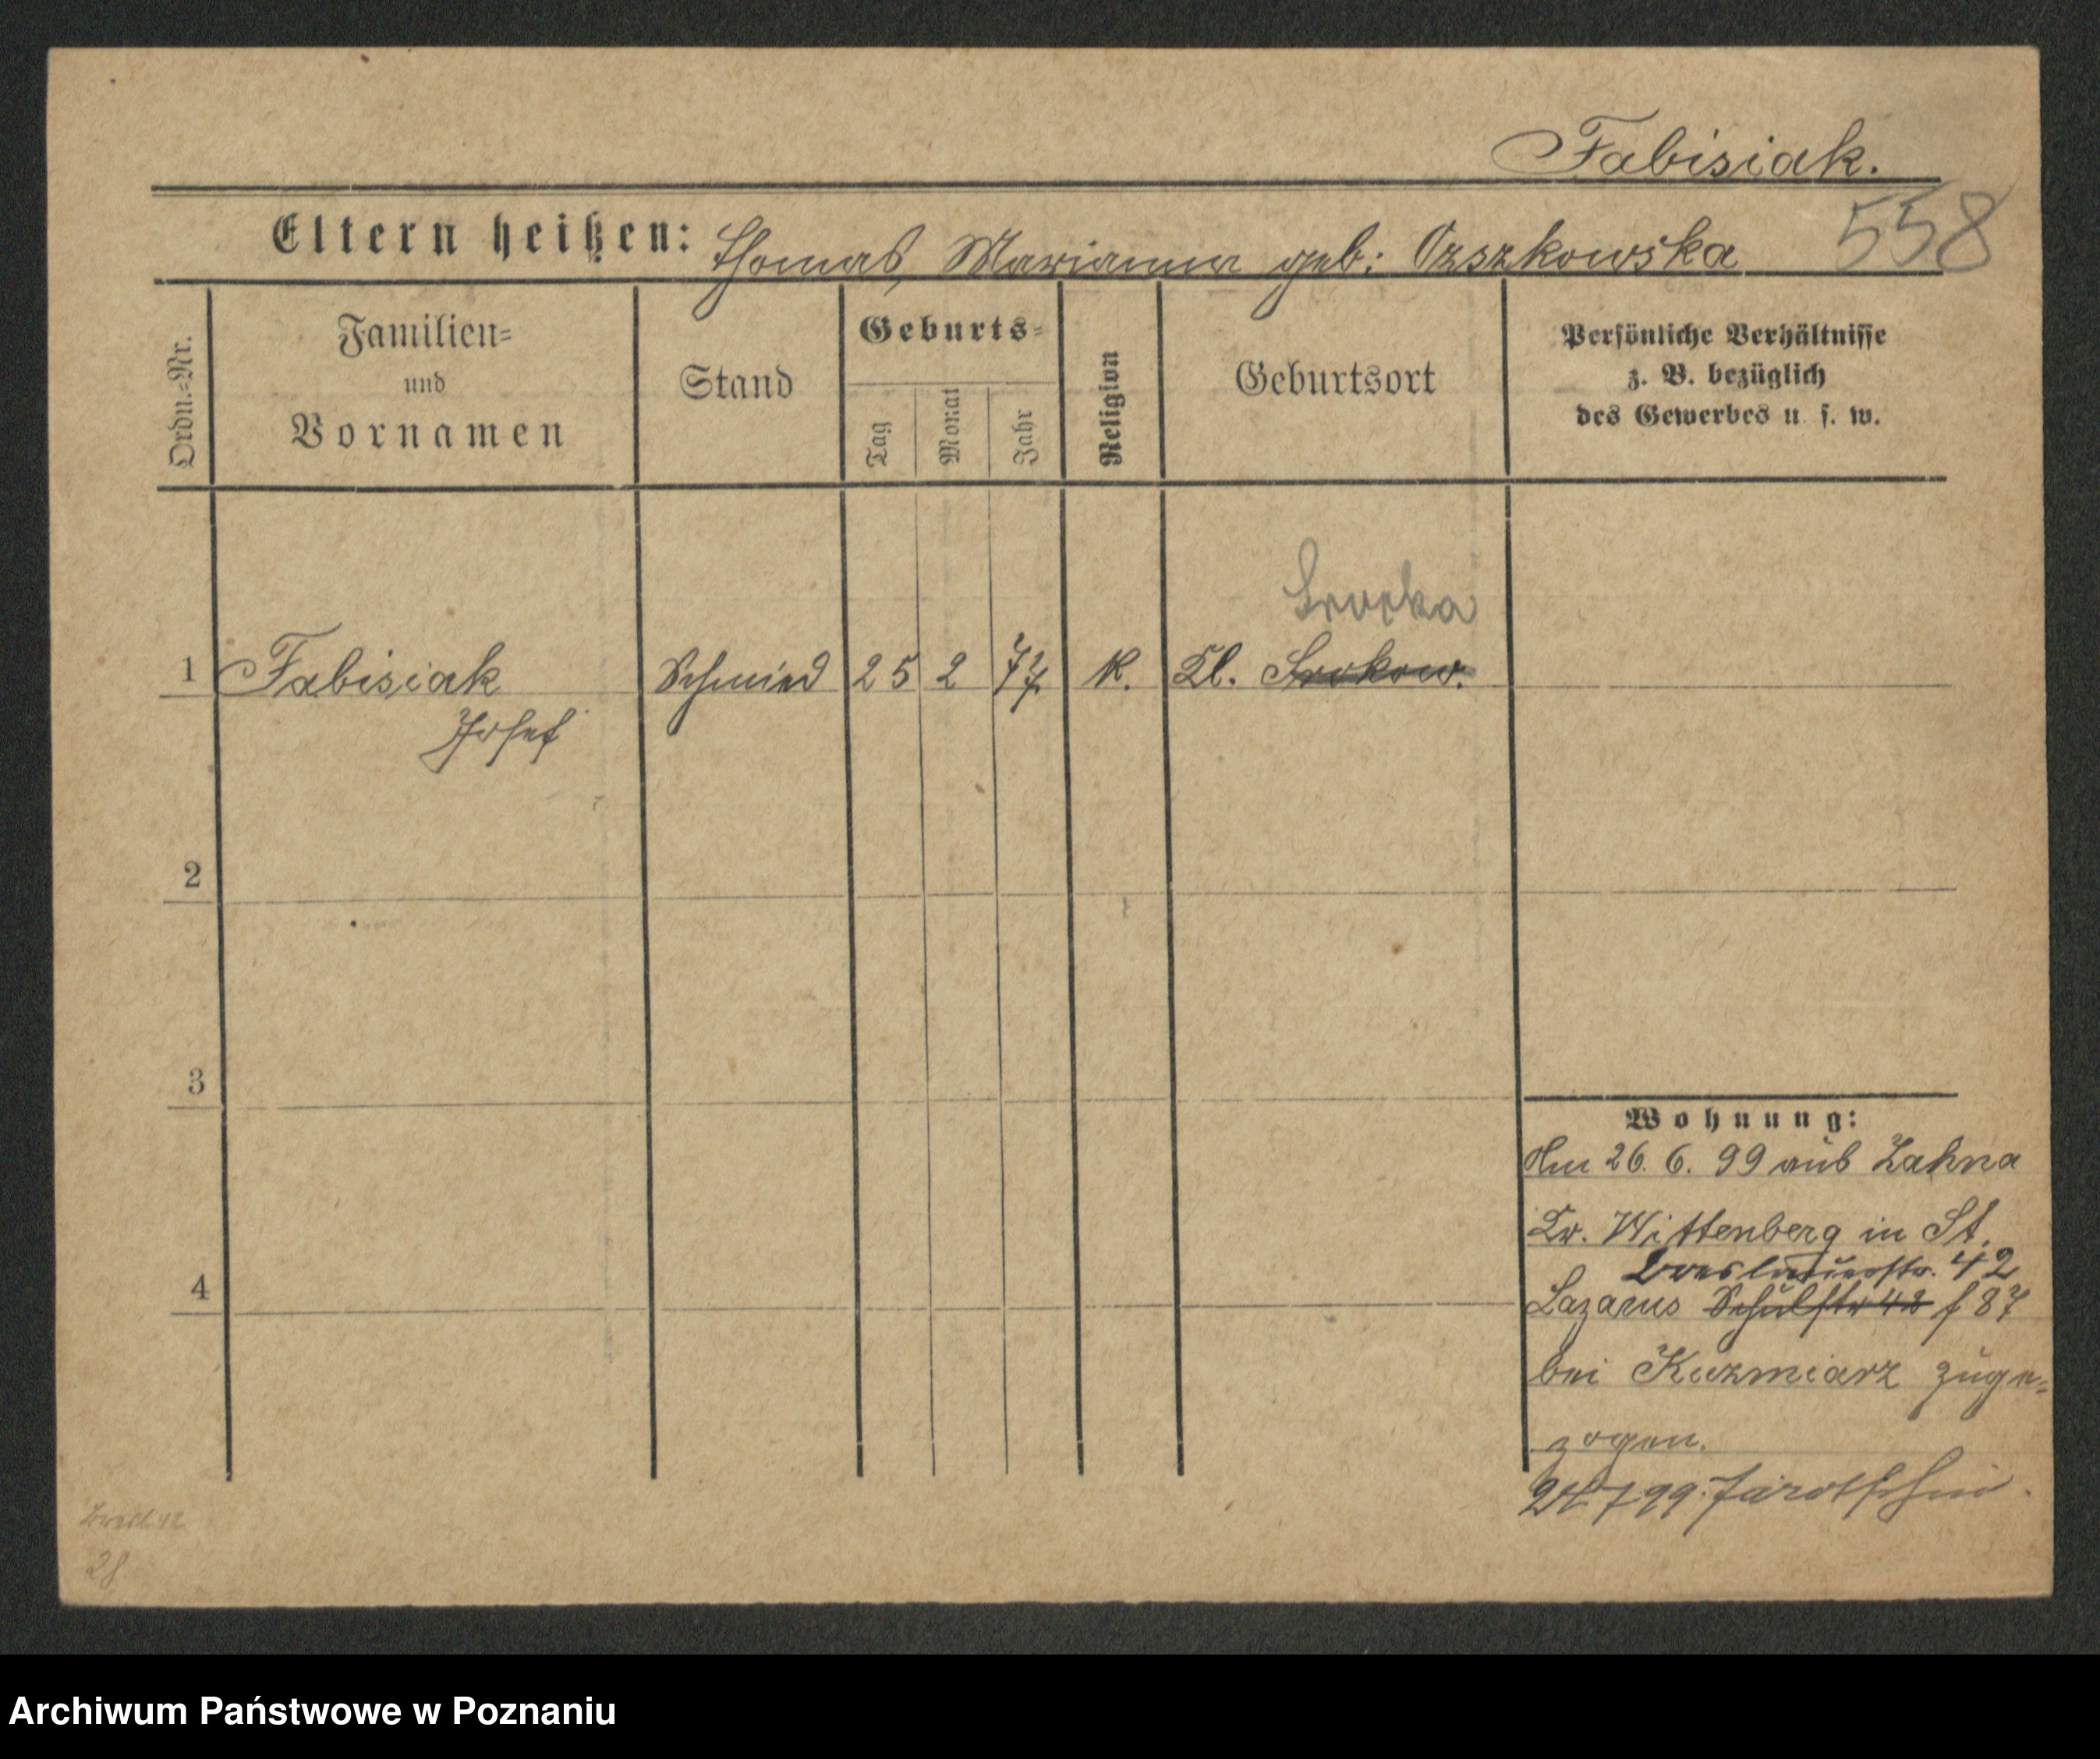 Fabisiak.
558
Eltern heißen: Thomas, Marianna geb: Ozszkowska
Ordn.-Nr.
Familien-
und
Vornamen
Stand
Geburts-
Tag
Monat
Jahr
Religion
Geburtsort
Persönliche Verhältnisse
z. B. bezüglich
des Gewerbes u. s. w.
Srocka
1 Fabisiak Schmied 25 2 77 K. Kl. Srokow.
Josef
2
3
4
Wohnung:
Am 26. 6. 99 aus Zahna
Kr. Wittenberg in St.
Breslauerstr. 42
Lazarus Schulstr 42 f 87
bei Kuzmiarz zuge-
zogen.
24 7 99. Jarotschin.
Bresl. 42
28
Archiwum Państwowe w Poznaniu